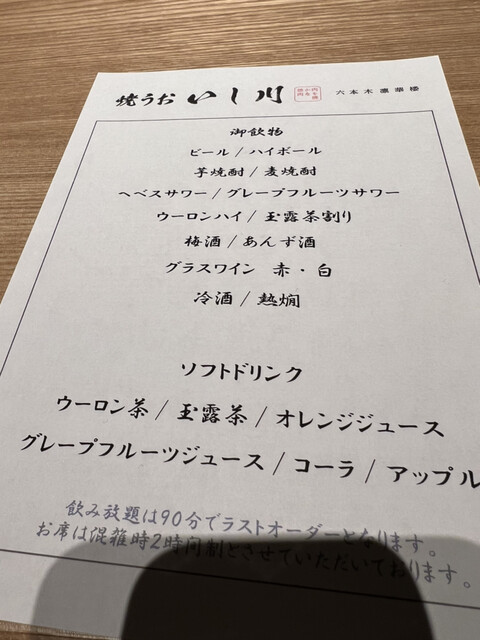 焼うお いし川 六本木
御飲物
ビール / ハイボール
芋焼酎 / 麦焼酎
ヘベスサワー / グレープフルーツサワー
ウーロンハイ / 玉露茶割り
梅酒 / あんず酒
グラスワイン 赤・白
冷酒 / 熱燗
ソフトドリンク
ウーロン茶 / 玉露茶 / オレンジジュース
グレープフルーツジュース / コーラ / アップル
飲み放題は90分でラストオーダーとなります。
お席は混雑時2時間制とさせていただいております。